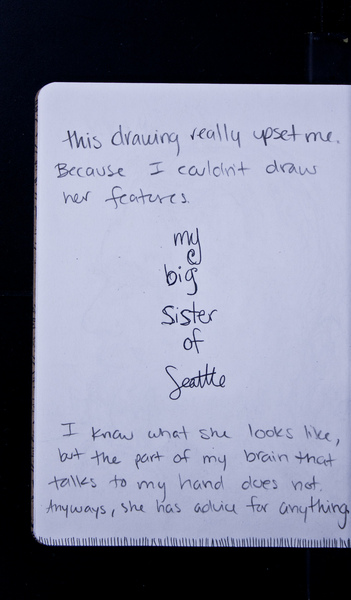 this drawing really upset me.
Because I couldn't draw
her features.
my
big
Sister
of
Seattle
I know what she looks like,
but the part of my brain that
talks to my hand does not.
Anyways, she has advice for anything